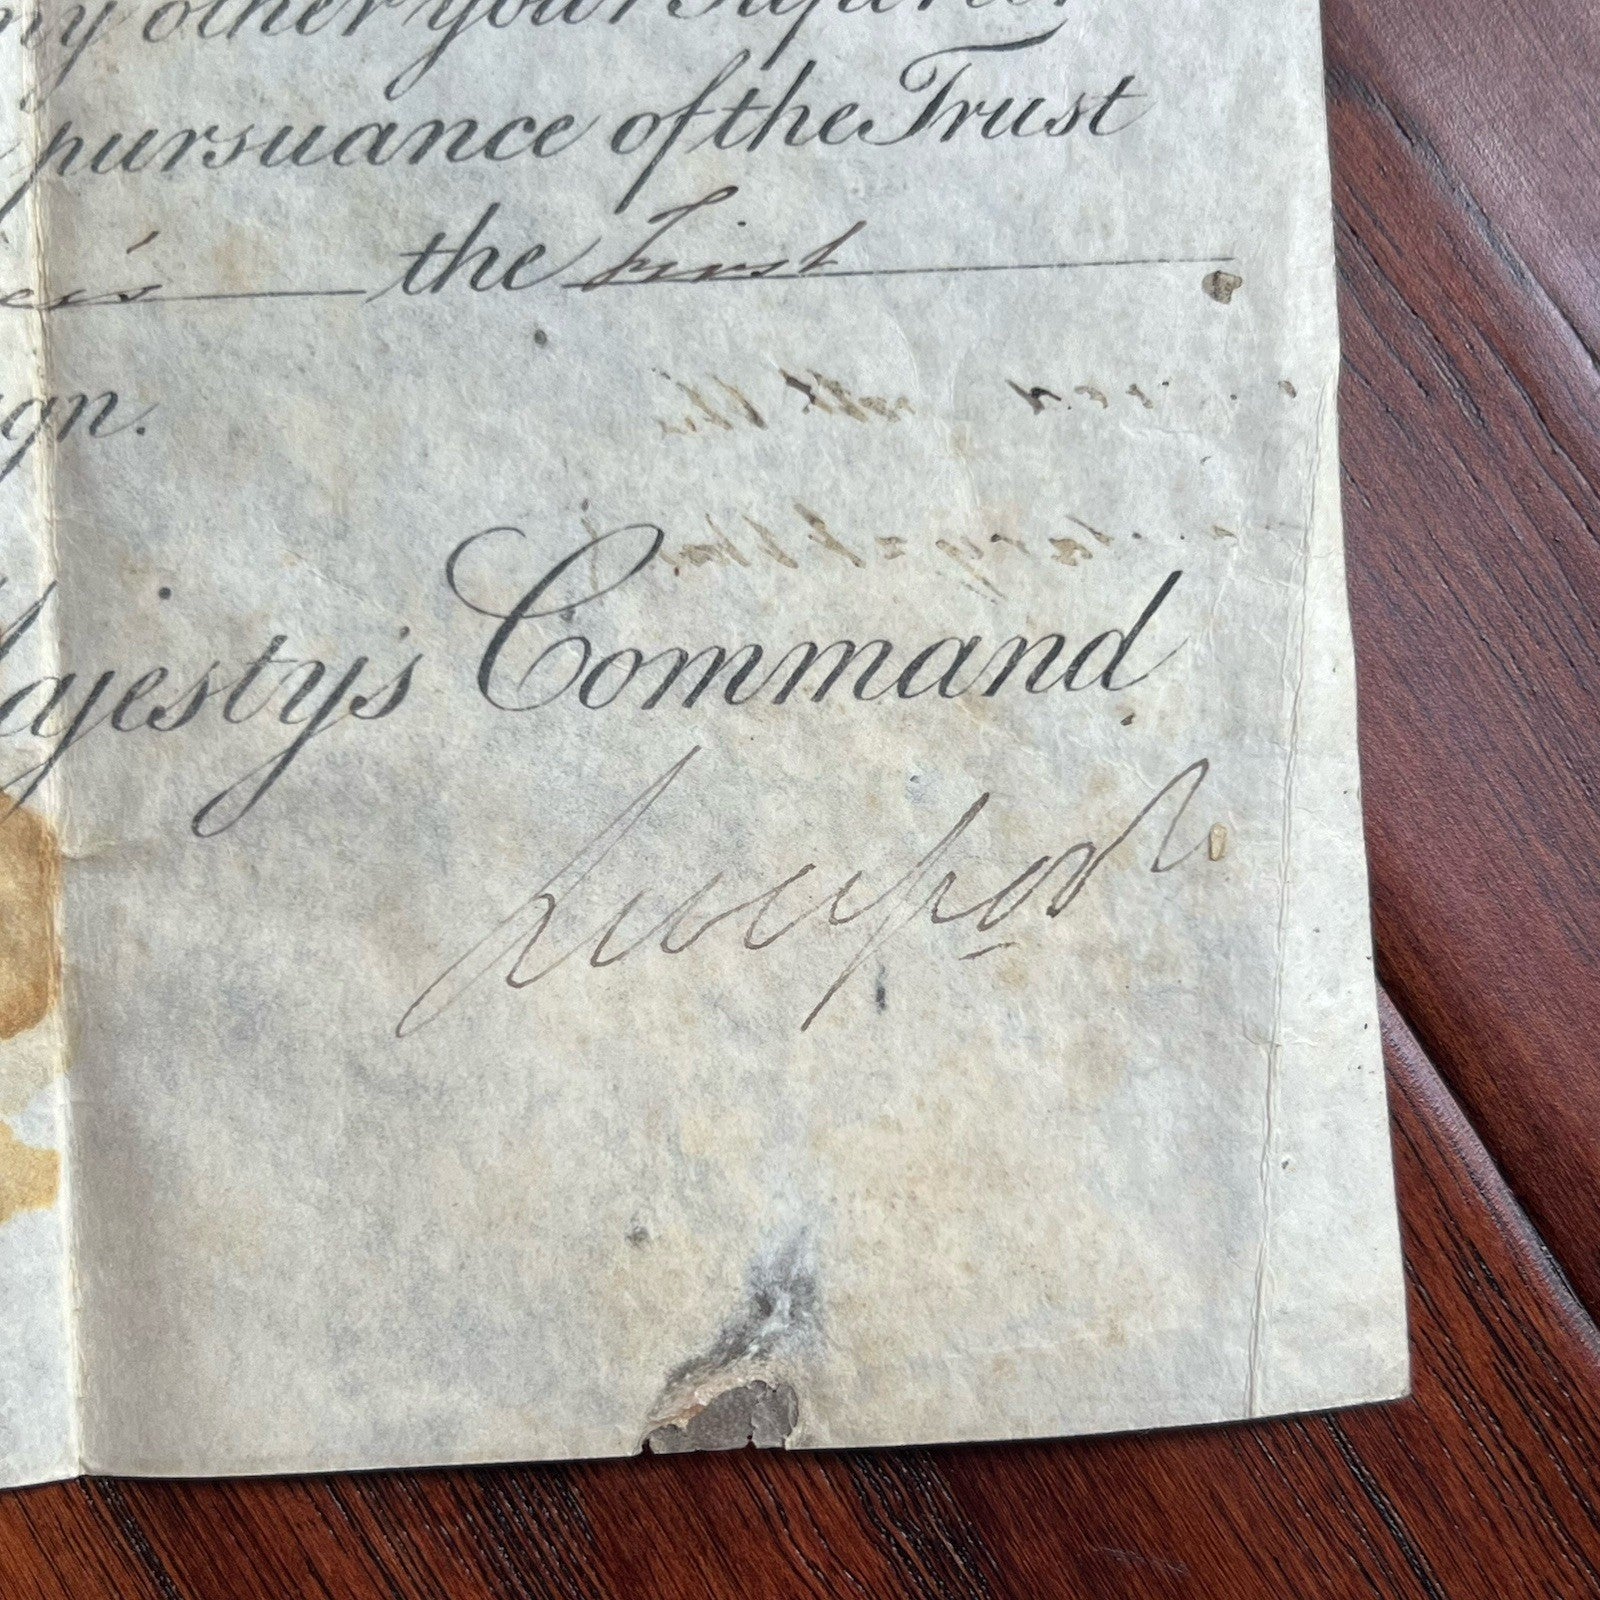 ny other your Superior
pursuance of the Trust
the First
ign.
Majesty's Command
Liverpool